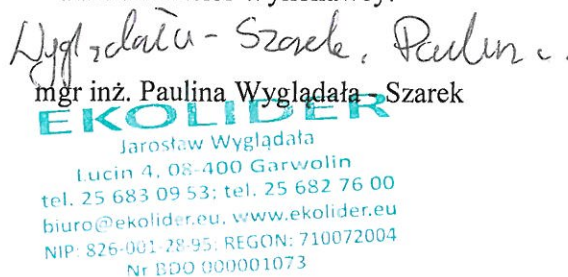 Wyglądała - Szarek, Paulina
mgr inż. Paulina Wyglądała - Szarek
EKOLIDER
Jarosław Wyglądała
Lucin 4, 08-400 Garwolin
tel. 25 683 09 53; tel. 25 682 76 00
biuro@ekolider.eu, www.ekolider.eu
NIP: 826-001-28-95; REGON: 710072004
Nr BDO 000001073